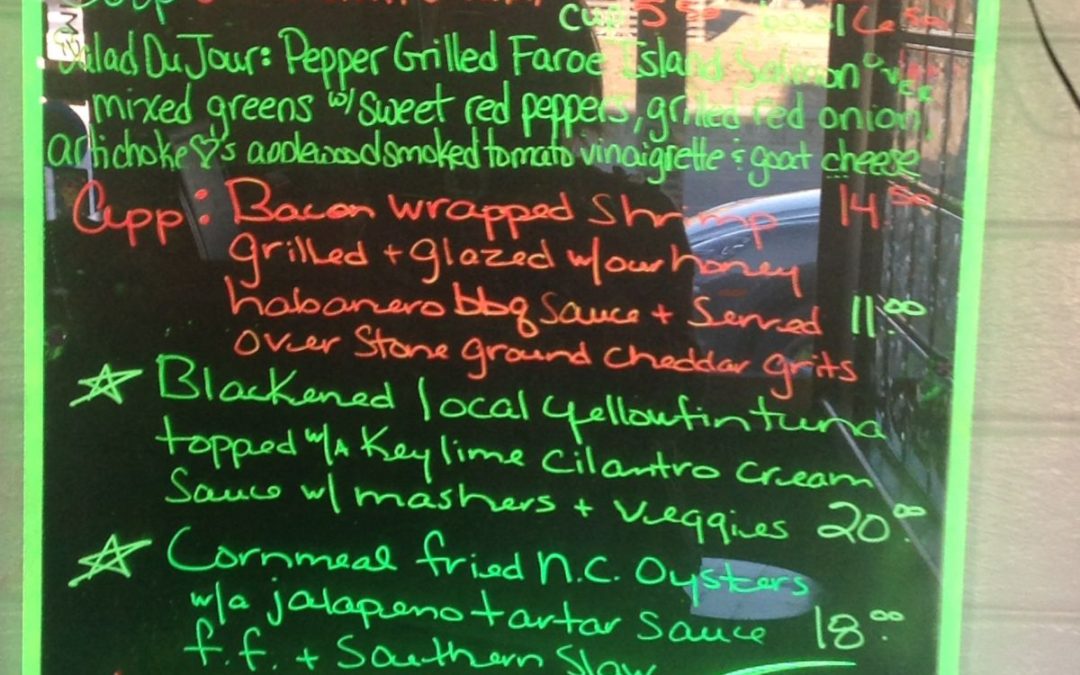 cup 5.50 bowl 6.50
Salad Du Jour: Pepper Grilled Faroe Island Salmon over
mixed greens w/ sweet red peppers, grilled red onion,
artichoke ♡'s applewood smoked tomato vinaigrette & goat cheese
App: Bacon wrapped Shrimp 14.50
grilled + glazed w/our honey
habanero bbq Sauce + Served 11.00
over Stone ground cheddar grits
☆ Blackened local yellowfin tuna
topped w/A Key lime cilantro cream
Sauce w/ mashers + veggies 20.00
☆ Cornmeal fried N.C. Oysters
w/a jalapeno tartar sauce 18.00
f.f. + Southern Slaw